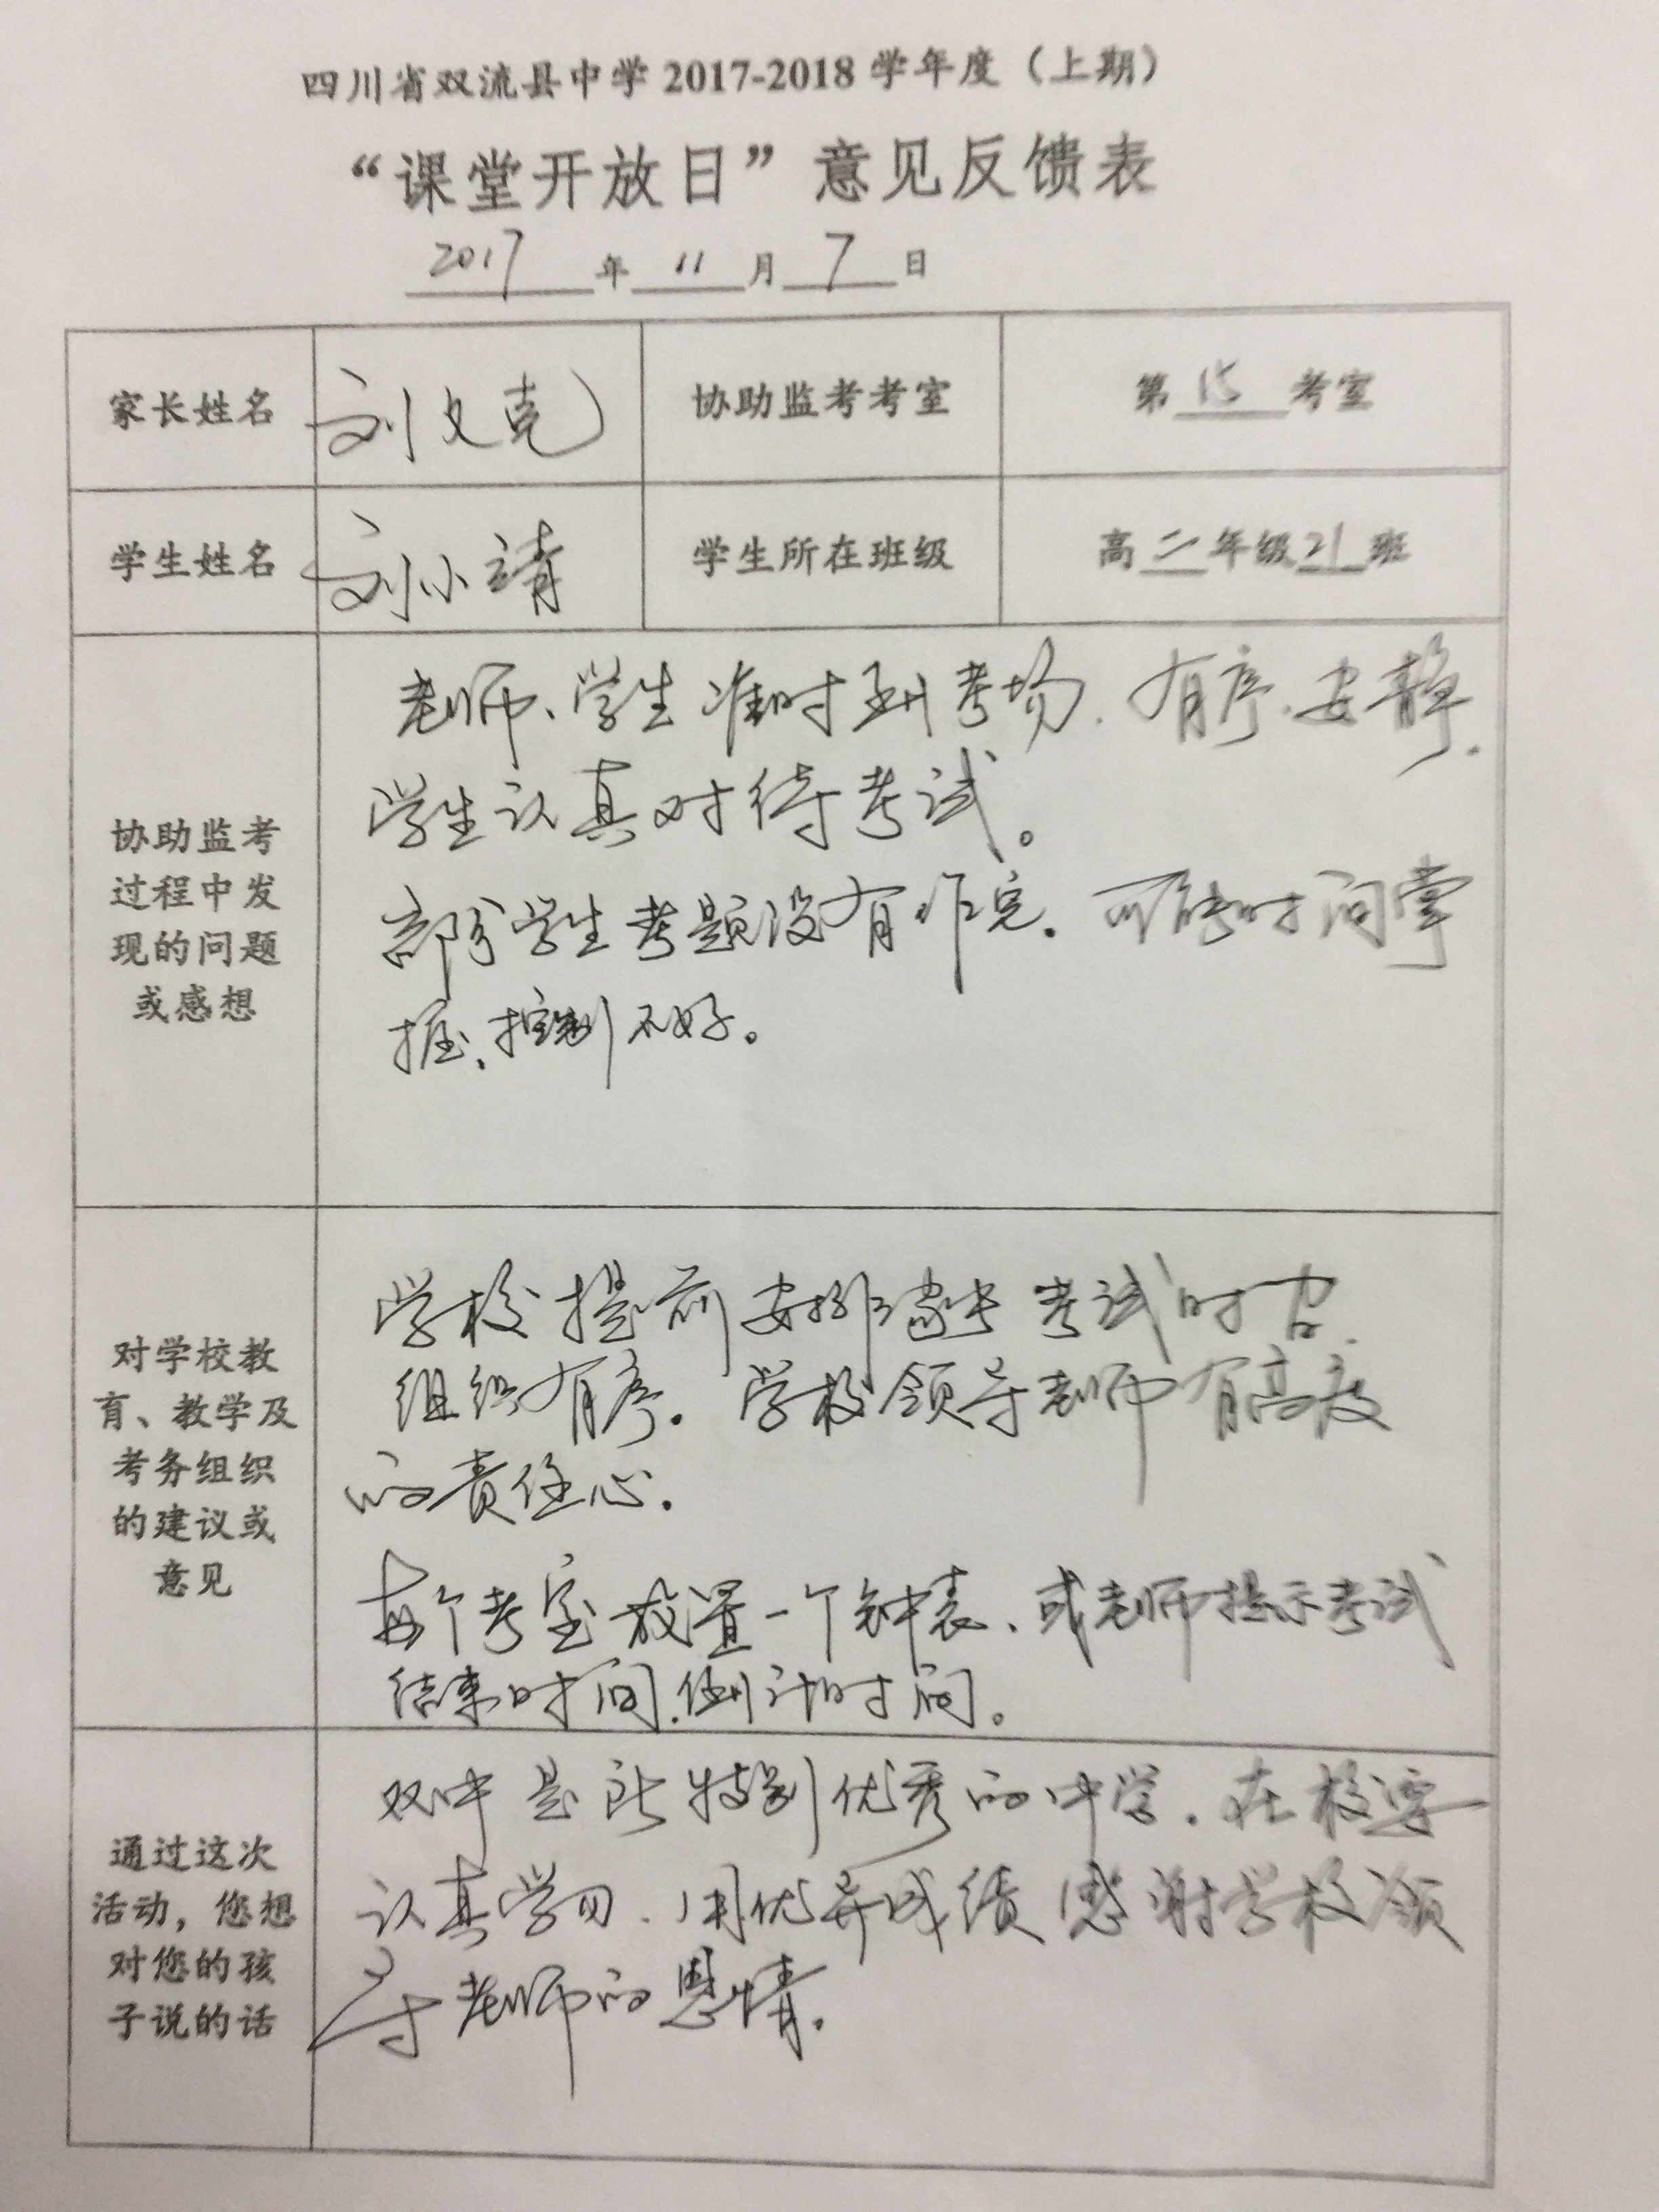 四川省双流县中学 2017-2018 学年度（上期）
“课堂开放日”意见反馈表
2017 年 11 月 7 日
家长姓名 刘文克 协助监考考室 第 15 考室
学生姓名 刘小靖 学生所在班级 高 二 年级 21 班
协助监考
过程中发
现的问题
或感想
老师、学生准时到考场.有序.安静.
学生认真对待考试。
部分学生考题没有作完.可能时间掌
握、控制不好。
对学校教
育、教学及
考务组织
的建议或
意见
学校提前安排家长考试时
组织有序.学校领导老师有高度
的责任心.
每个考室放置一个钟表、或老师提示考试
结束时间.倒计时间。
通过这次
活动，您想
对您的孩
子说的话
双中是所特别优秀的中学.在校要
认真学习.用优异成绩感谢学校领
导老师的恩情.